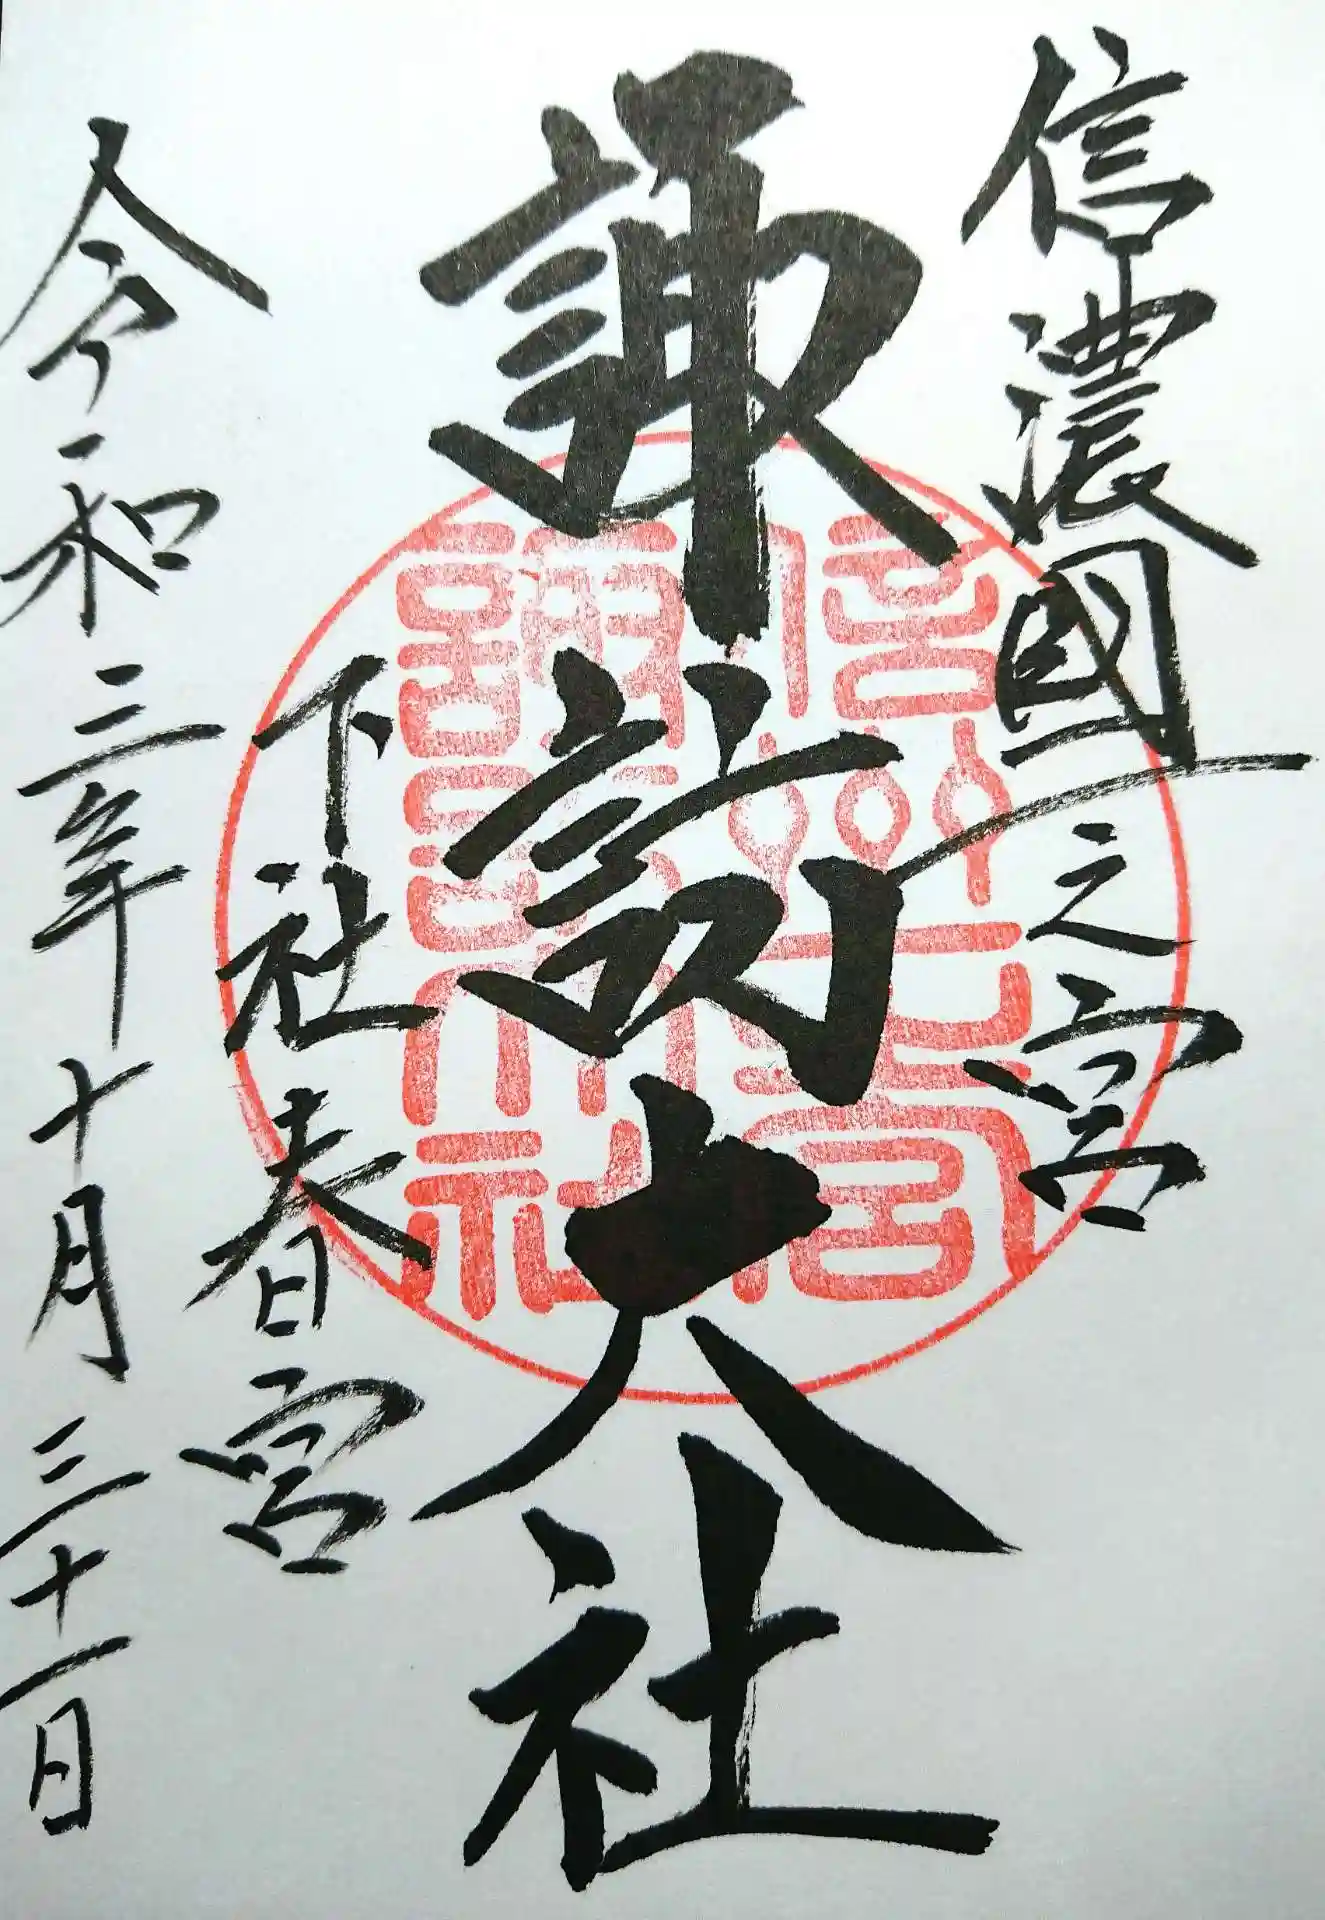 信濃國一之宮
諏訪大社
下社
春宮
令和三年十月三十一日
信州一之宮
諏訪大社